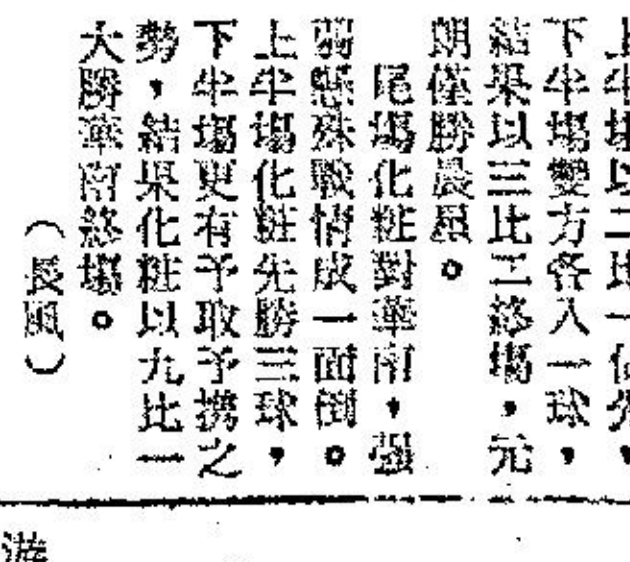 上半場以二比一佔先，
下半場變方各入一球，
結果以三比二終場，元
朗僅勝晨。
尾場化粧對華南，强
弱懸殊戰情成一面倒。
上半場化粧先勝三球，
下半場更有予取予携之
勢，結果化粧以九比一
大勝華南終場。
（長風）
游